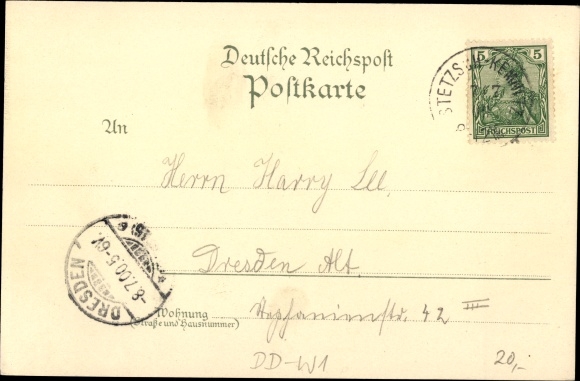 Deutsche Reichspost
Postkarte
5 5
REICHSPOST
STETZSCH-KEMNITZ
An
Herrn Harry Lee.
Dresden Alt.
DRESDEN
-8.7.00.5-6V.
Wohnung
(Straße und Hausnummer)
Stephanienstr. 42 III
DD-W1
20,-